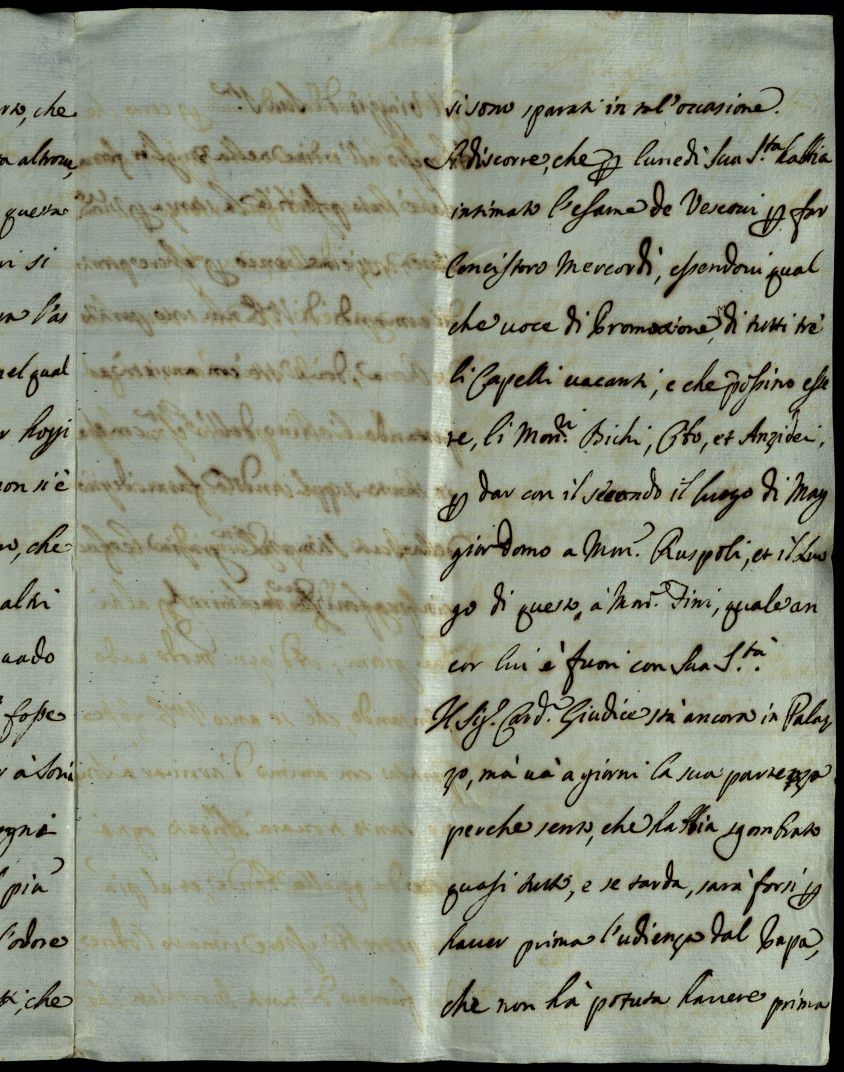 rso, che
ra altroue,
questa
ri si
l'as
nel qual
r hoggi
non s'è
che
altri
uado
fosse
r à Soria
ogni
più
l'odore
che
si sono sparati in tal'occasione.
Si discorre, che p lunedì Sua S.tà habbia
intimato l'esame de Vescoui p far
Concistoro Mercordì, essendoui qual
che uoce di Promozione, di tutti trè
li Capelli uacanti, e che possino esse
re, li Mons.ri Bichi, Cibo, et Anzidei,
p dar con il secondo il luogo di Mag
giordomo a Mon.r Ruspoli, et il Luo
go di questo, à Mon.r Fini, quale an
cor lui è fuori con Sua S.tà.
Il Sig.r Card.l Giudice stà ancora in Palaz
zo, mà uà a giorni la sua partenza
perche sento, che habbia sgombrato
quasi tutto, e se tarda, sarà forsi p
hauer prima l'udienza dal Papa,
che non hà potuta hauere prima